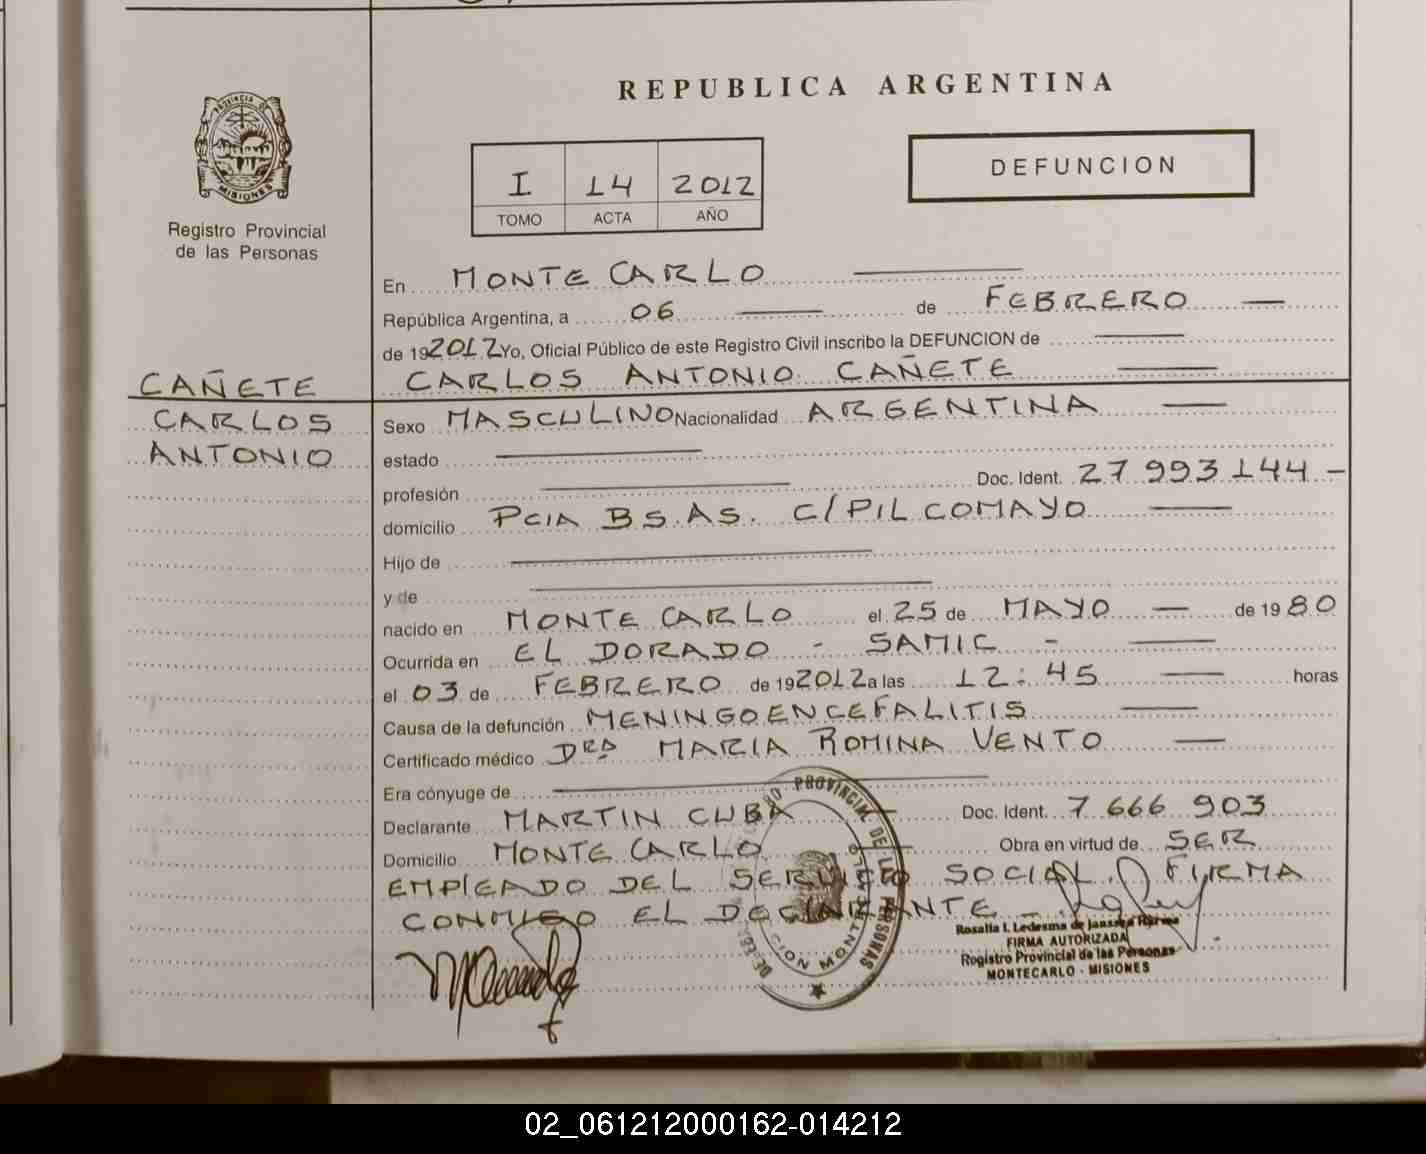 REPUBLICA ARGENTINA
PROVINCIA DE
MISIONES
Registro Provincial
de las Personas
I 14 2012
TOMO ACTA AÑO
DEFUNCION
En MONTE CARLO
República Argentina, a 06 de FEBRERO
de 192012 Yo, Oficial Público de este Registro Civil inscribo la DEFUNCION de
CARLOS ANTONIO CAÑETE
CAÑETE
CARLOS
ANTONIO
Sexo MASCULINO Nacionalidad ARGENTINA
estado
profesión Doc. Ident. 27 993 144 -
domicilio PCIA BS.AS. C/PILCOMAYO
Hijo de
y de
nacido en MONTE CARLO el 25 de MAYO de 19 80
Ocurrida en EL DORADO - SAMIC -
el 03 de FEBRERO de 192012 a las 12:45 horas
Causa de la defunción MENINGOENCEFALITIS
Certificado médico DRA MARIA ROMINA VENTO
Era cónyuge de
Declarante MARTIN CUBA Doc. Ident. 7 666 903
Domicilio MONTE CARLO Obra en virtud de SER
EMPLEADO DEL SERVICIO SOCIAL. FIRMA
CONMIGO EL DECLARANTE -
PROVINCIAL DE LAS PERSONAS
Rosalia I. Ledesma de
FIRMA AUTORIZADA
Registro Provincial de las Personas
MONTECARLO - MISIONES
02_061212000162-014212